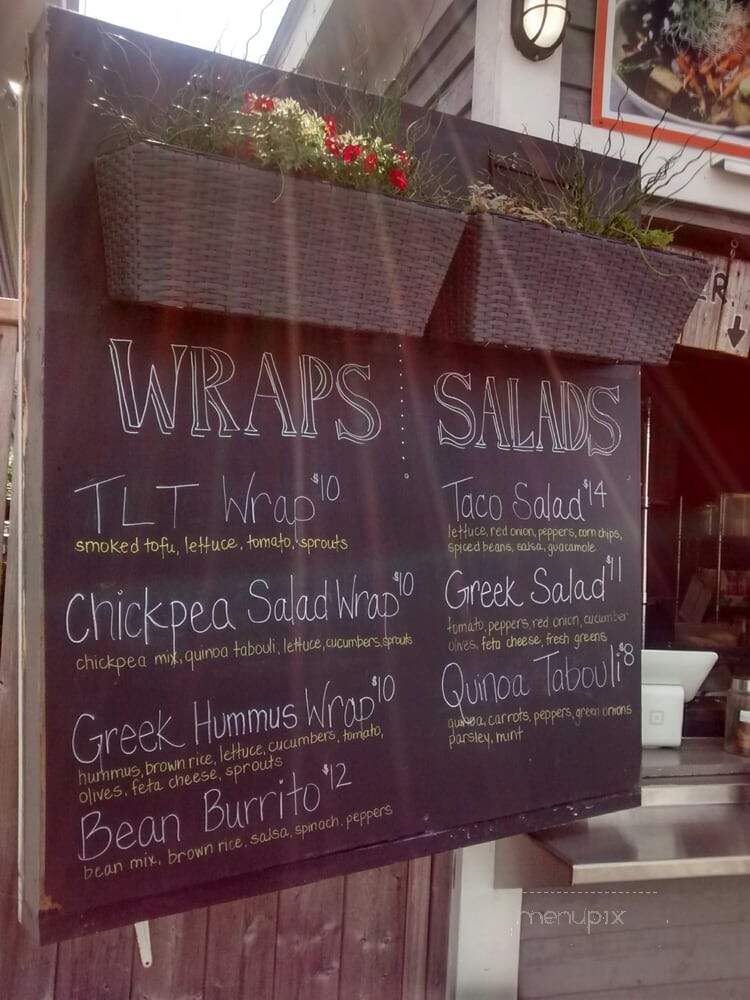 WRAPS
TLT Wrap $10
smoked tofu, lettuce, tomato, sprouts
Chickpea Salad Wrap $10
chickpea mix, quinoa tabouli, lettuce, cucumbers, sprouts
Greek Hummus Wrap $10
hummus, brown rice, lettuce, cucumbers, tomato,
olives, feta cheese, sprouts
Bean Burrito $12
bean mix, brown rice, salsa, spinach, peppers
SALADS
Taco Salad $14
lettuce, red onion, peppers, corn chips,
spiced beans, salsa, guacamole
Greek Salad $11
tomato, peppers, red onion, cucumber
olives, feta cheese, fresh greens
Quinoa Tabouli $8
quinoa, carrots, peppers, green onions
parsley, mint
menupix